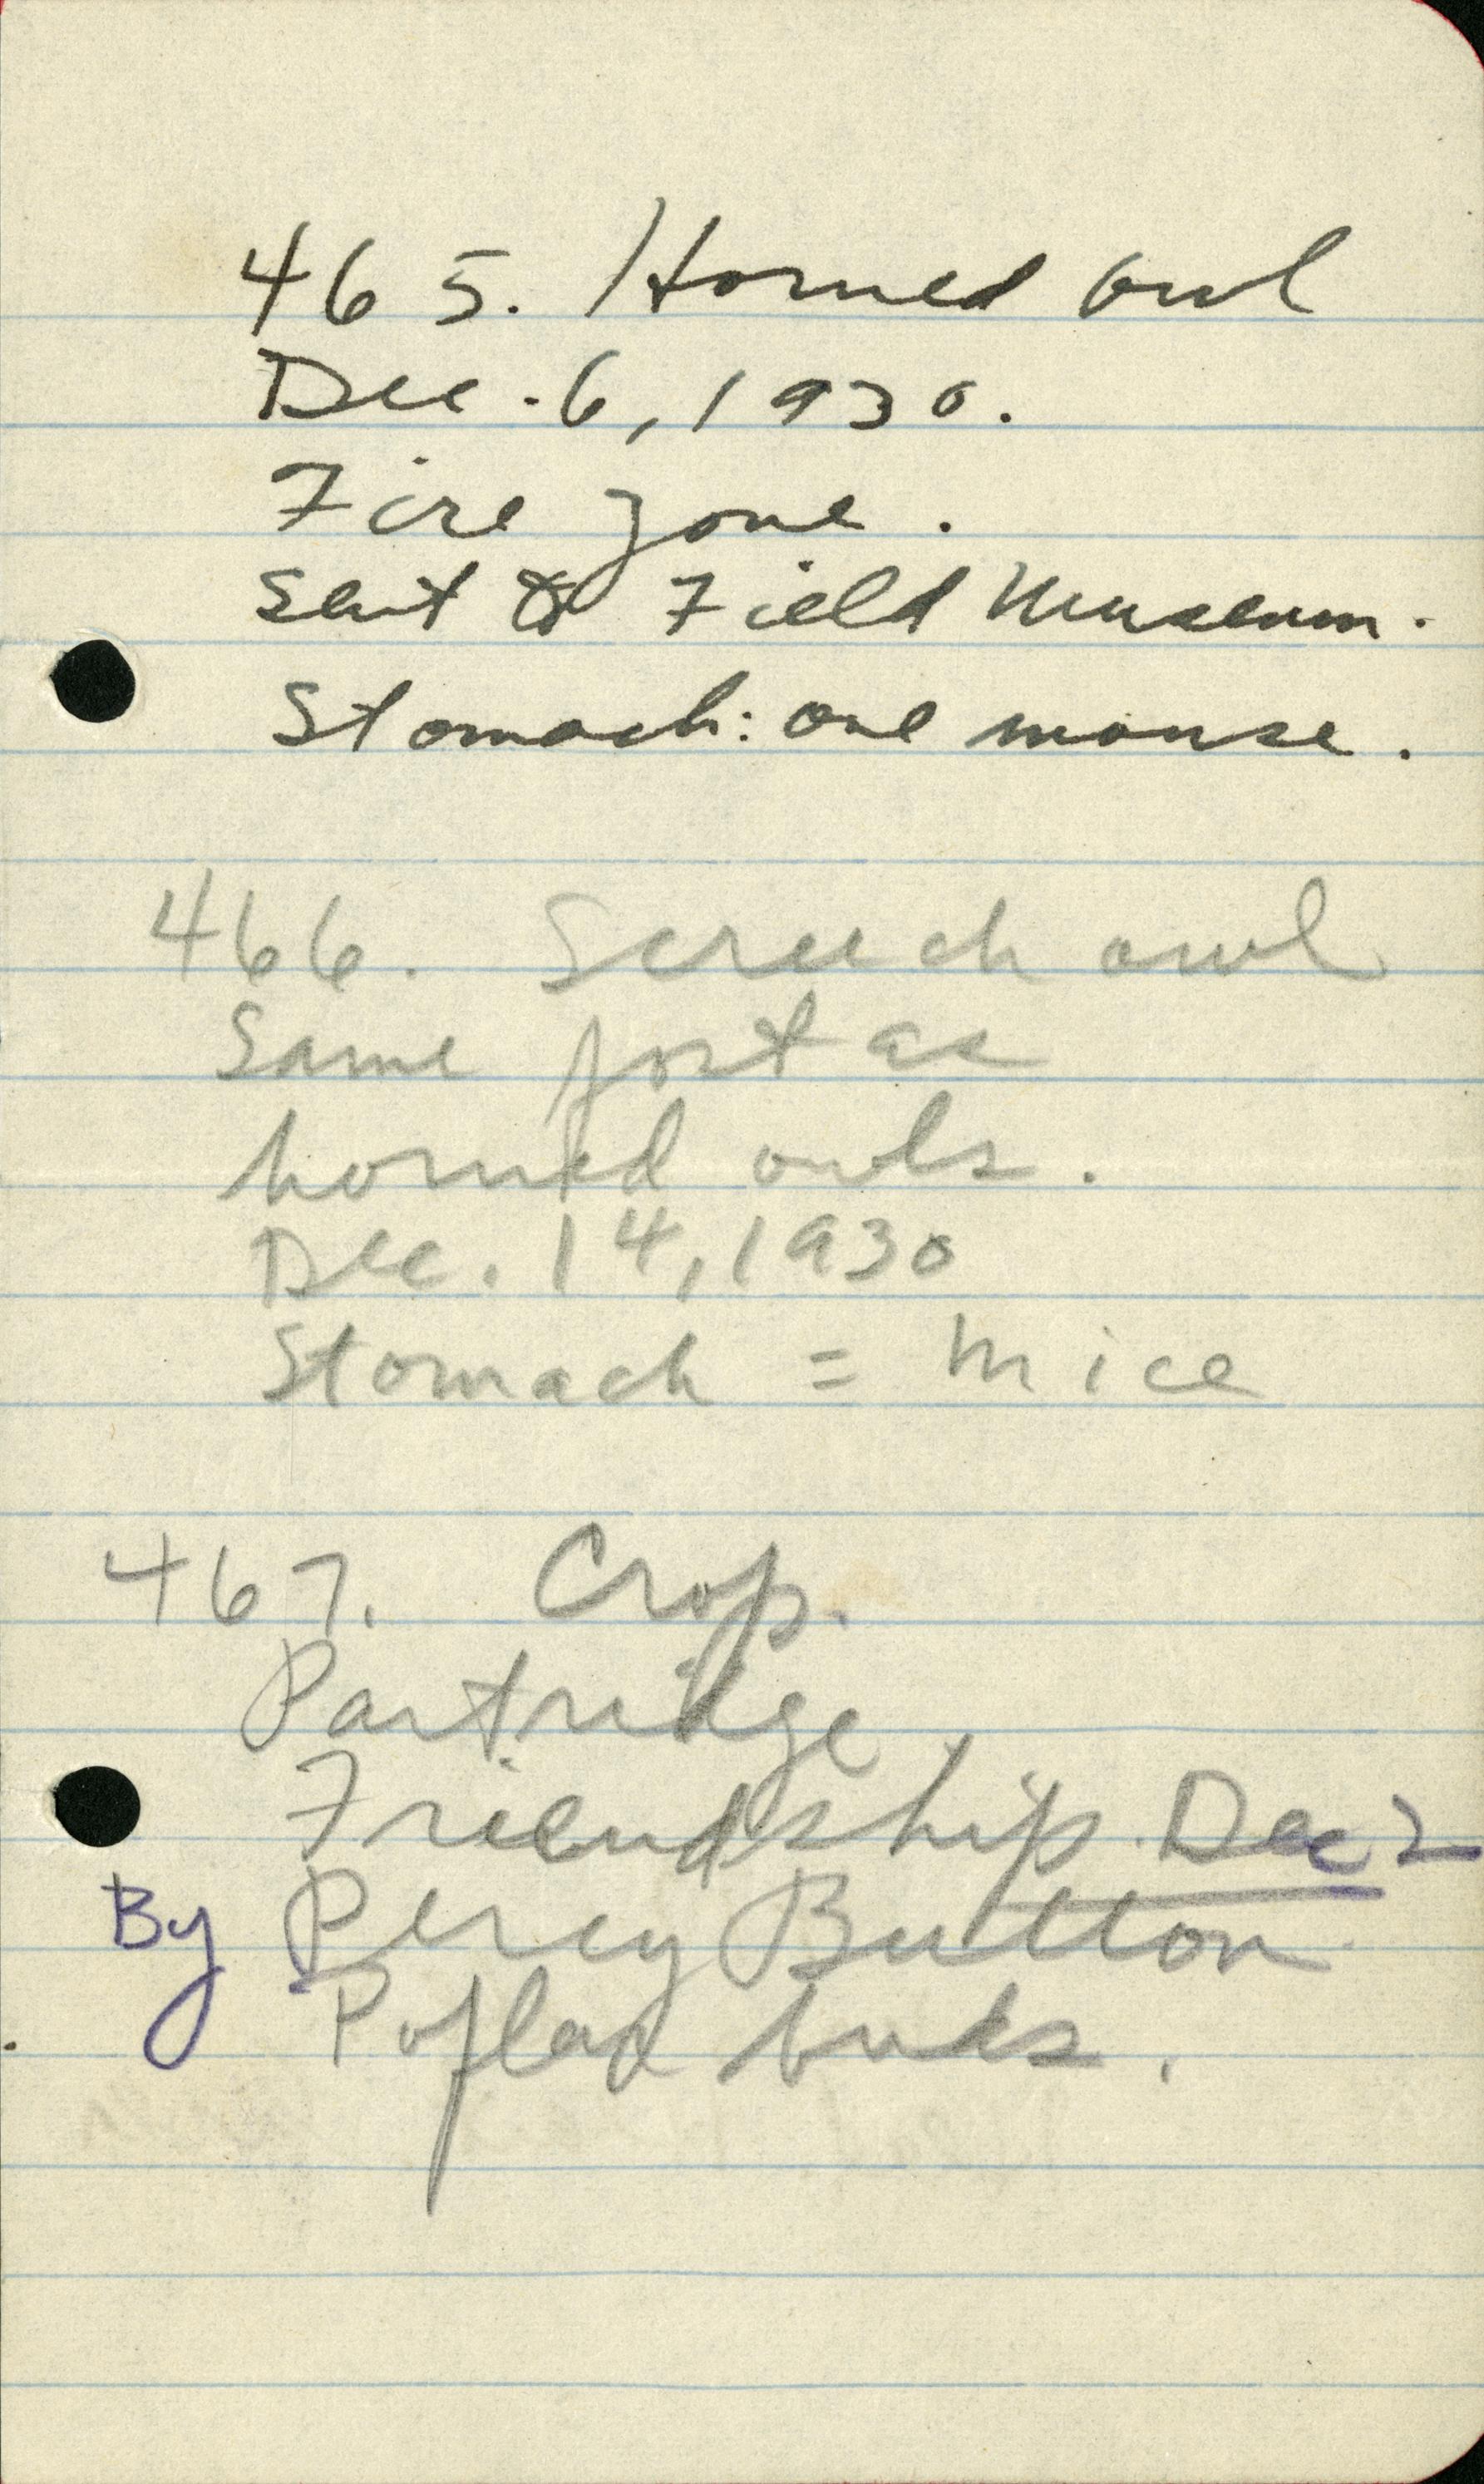 465. Horned owl
Dec. 6, 1930.
Fire zone.
Sent to Field Museum.
Stomach: one mouse.
466. Screech owl
Same post as
horned owls.
Dec. 14, 1930
Stomach = Mice
467. Crop.
Partridge
Friendship. Dec 2
By Percy Button
Poplar buds.